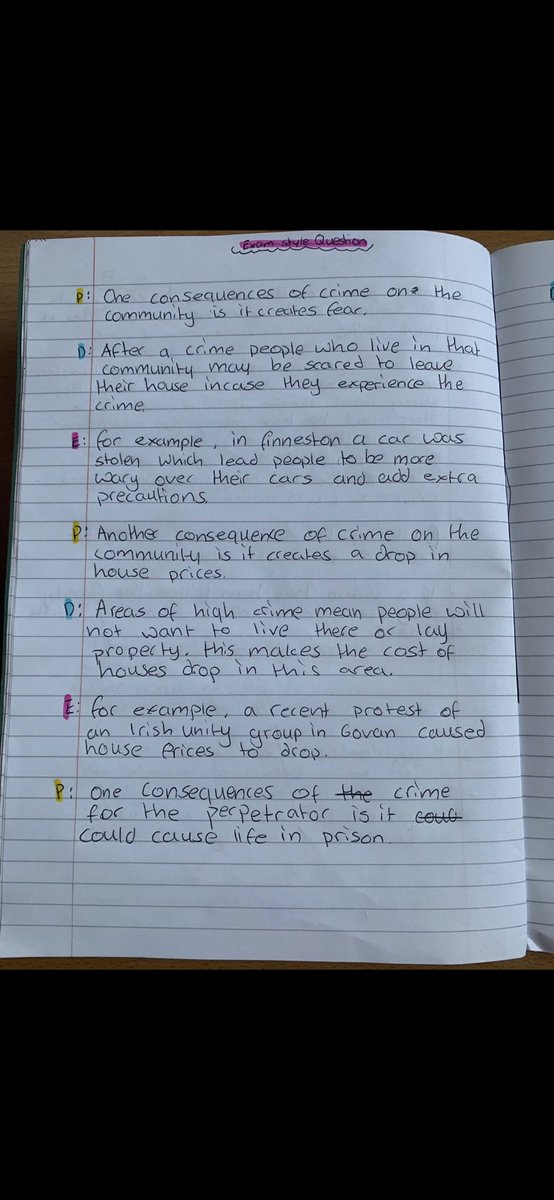 Exam style Question
P: One consequences of crime on the
community is it creates fear.
D: After a crime people who live in that
community may be scared to leave
their house incase they experience the
crime.
E: for example, in finneston a car was
stolen which lead people to be more
wary over their cars and add extra
precautions.
P: Another consequence of crime on the
community is it creates a drop in
house prices.
D: Areas of high crime mean people will
not want to live there or lay
property. this makes the cost of
houses drop in this area.
E: for example, a recent protest of
an Irish unity group in Govan caused
house prices to drop.
P: one consequences of the crime
for the perpetrator is it coul
could cause life in prison.